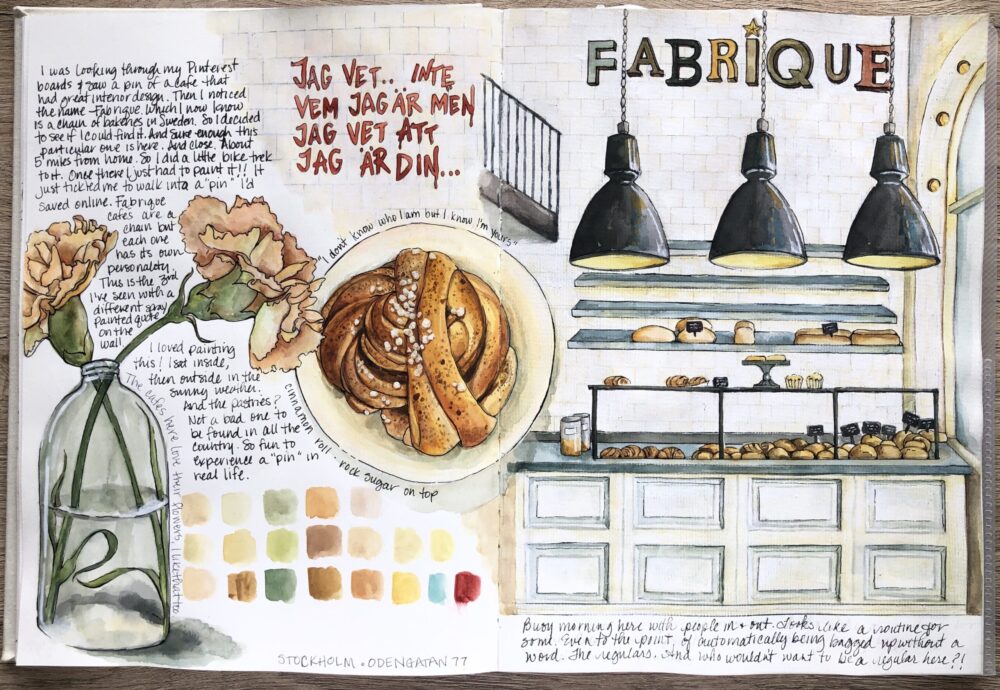 I was looking through my Pinterest
boards & saw a pin of a cafe that
had great interior design. Then I noticed
the name - Fabrique. Which I now know
is a chain of bakeries in Sweden. So I decided
to see if I could find it. And sure enough this
particular one is here. And close. About
5 miles from home. So I did a little bike trek
to it. Once there I just had to paint it!! It
just tickled me to walk into a "pin" I'd
saved online. Fabrique
cafes are a
chain but
each one
has its own
personality.
This is the 3rd
I've seen with a
different spray
painted quote
on the
wall.
I loved painting
this! I sat inside,
then outside in the
sunny weather.
And the pastries?
Not a bad one to
be found in all the
country. So fun to
experience a "pin" in
real life.
The cafes here love their flowers. I like that too
JAG VET.. INTE
VEM JAG ÄR MEN
JAG VET ATT
JAG ÄR DIN...
"I don't know who I am but I know I'm yours"
cinnamon roll - rock sugar on top
STOCKHOLM • ODENGATAN 77
FABRIQUE
Busy morning here with people in & out. Looks like a routine for
some. Even to the point of automatically being bagged up without a
word. The regulars. And who wouldn't want to be a regular here?!